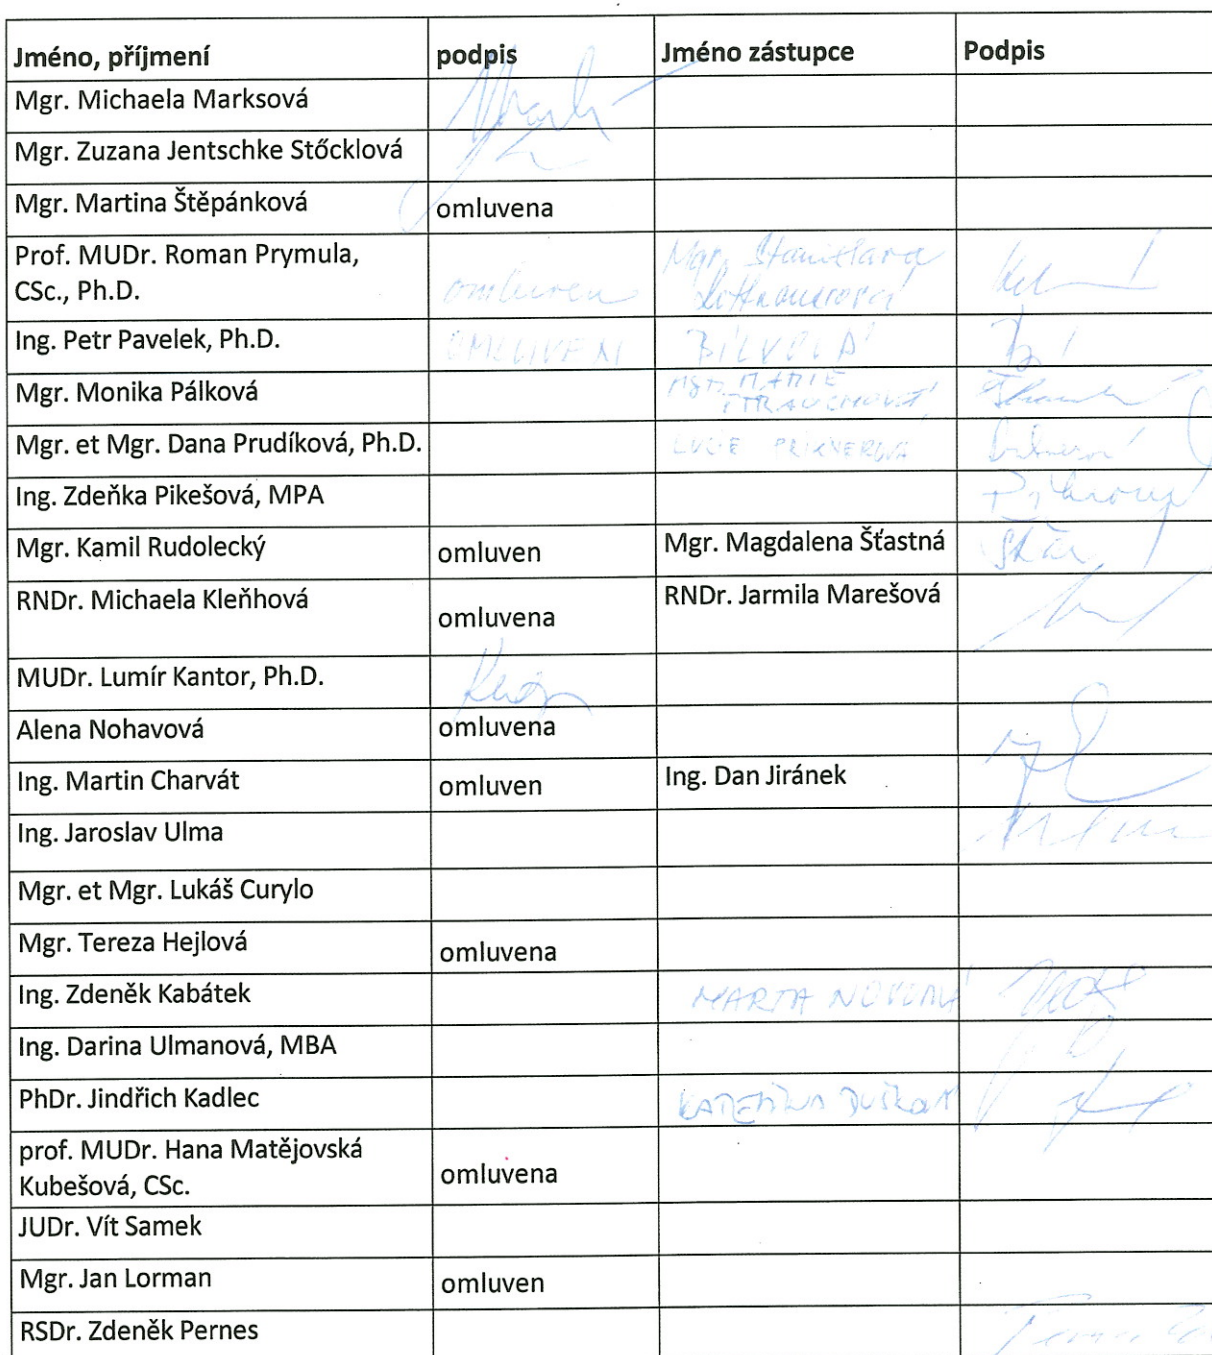 Jméno, příjmení podpis Jméno zástupce Podpis
Mgr. Michaela Marksová
Mgr. Zuzana Jentschke Stőcklová
Mgr. Martina Štěpánková omluvena
Prof. MUDr. Roman Prymula, Mgr. Stanislava
CSc., Ph.D. omluven
Ing. Petr Pavelek, Ph.D. OMLUVEN
Mgr. Monika Pálková Mgr. MARIE
Mgr. et Mgr. Dana Prudíková, Ph.D. LUCIE PRIKNEROVÁ
Ing. Zdeňka Pikešová, MPA
Mgr. Kamil Rudolecký omluven Mgr. Magdalena Šťastná
RNDr. Michaela Kleňhová omluvena RNDr. Jarmila Marešová
MUDr. Lumír Kantor, Ph.D.
Alena Nohavová omluvena
Ing. Martin Charvát omluven Ing. Dan Jiránek
Ing. Jaroslav Ulma
Mgr. et Mgr. Lukáš Curylo
Mgr. Tereza Hejlová omluvena
Ing. Zdeněk Kabátek MARTA
Ing. Darina Ulmanová, MBA
PhDr. Jindřich Kadlec
prof. MUDr. Hana Matějovská
Kubešová, CSc. omluvena
JUDr. Vít Samek
Mgr. Jan Lorman omluven
RSDr. Zdeněk Pernes